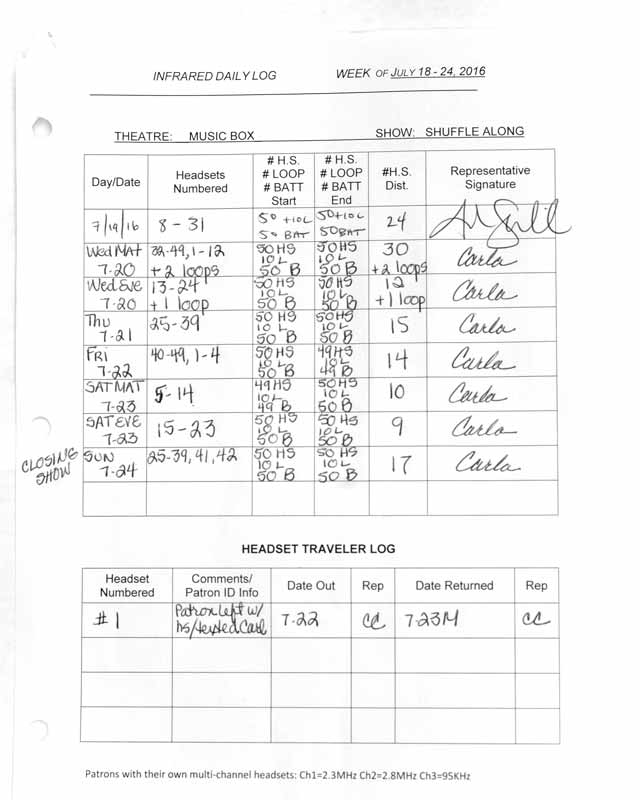 INFRARED DAILY LOG WEEK OF JULY 18 - 24, 2016
THEATRE: MUSIC BOX SHOW: SHUFFLE ALONG
Day/Date Headsets Numbered # H.S. # LOOP # BATT Start # H.S. # LOOP # BATT End #H.S. Dist. Representative Signature
7/19/16 8-31 50 +10L 50 BAT 50+10L 50BAT 24
Wed MAT 7-20 32-49, 1-12 +2 loops 50 HS 10 L 50 B 50 HS 10 L 50 B 30 +2 loops Carla
Wed Eve 7-20 13-24 +1 loop 50 HS 10L 50 B 50 HS 10L 50 B 12 +1 loop Carla
Thu 7-21 25-39 50 HS 10 L 50 B 50HS 10L 50 B 15 Carla
FRI 7-22 40-49, 1-4 50 HS 10L 50 B 49HS 10L 49 B 14 Carla
SAT MAT 7-23 5-14 49HS 10L 49 B 50HS 10L 50B 10 Carla
SAT EVE 7-23 15-23 50 HS 10L 50 B 50 HS 10L 50 B 9 Carla
CLOSING SHOW SUN 7-24 25-39, 41, 42 50 HS 10 L 50 B 50 HS 10 L 50 B 17 Carla
HEADSET TRAVELER LOG
Headset Numbered Comments/ Patron ID Info Date Out Rep Date Returned Rep
#1 Patron left w/ hs/ 7-22 CC 7-23M CC
Patrons with their own multi-channel headsets: Ch1=2.3MHz Ch2=2.8MHz Ch3=95KHz